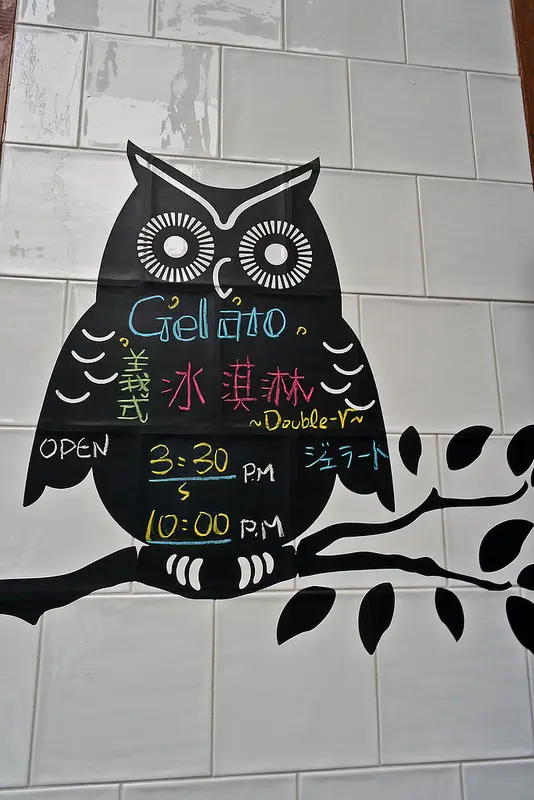 Gelato
義式
冰淇淋
~Double-V~
OPEN
3:30 P.M
10:00 P.M
ジェラート